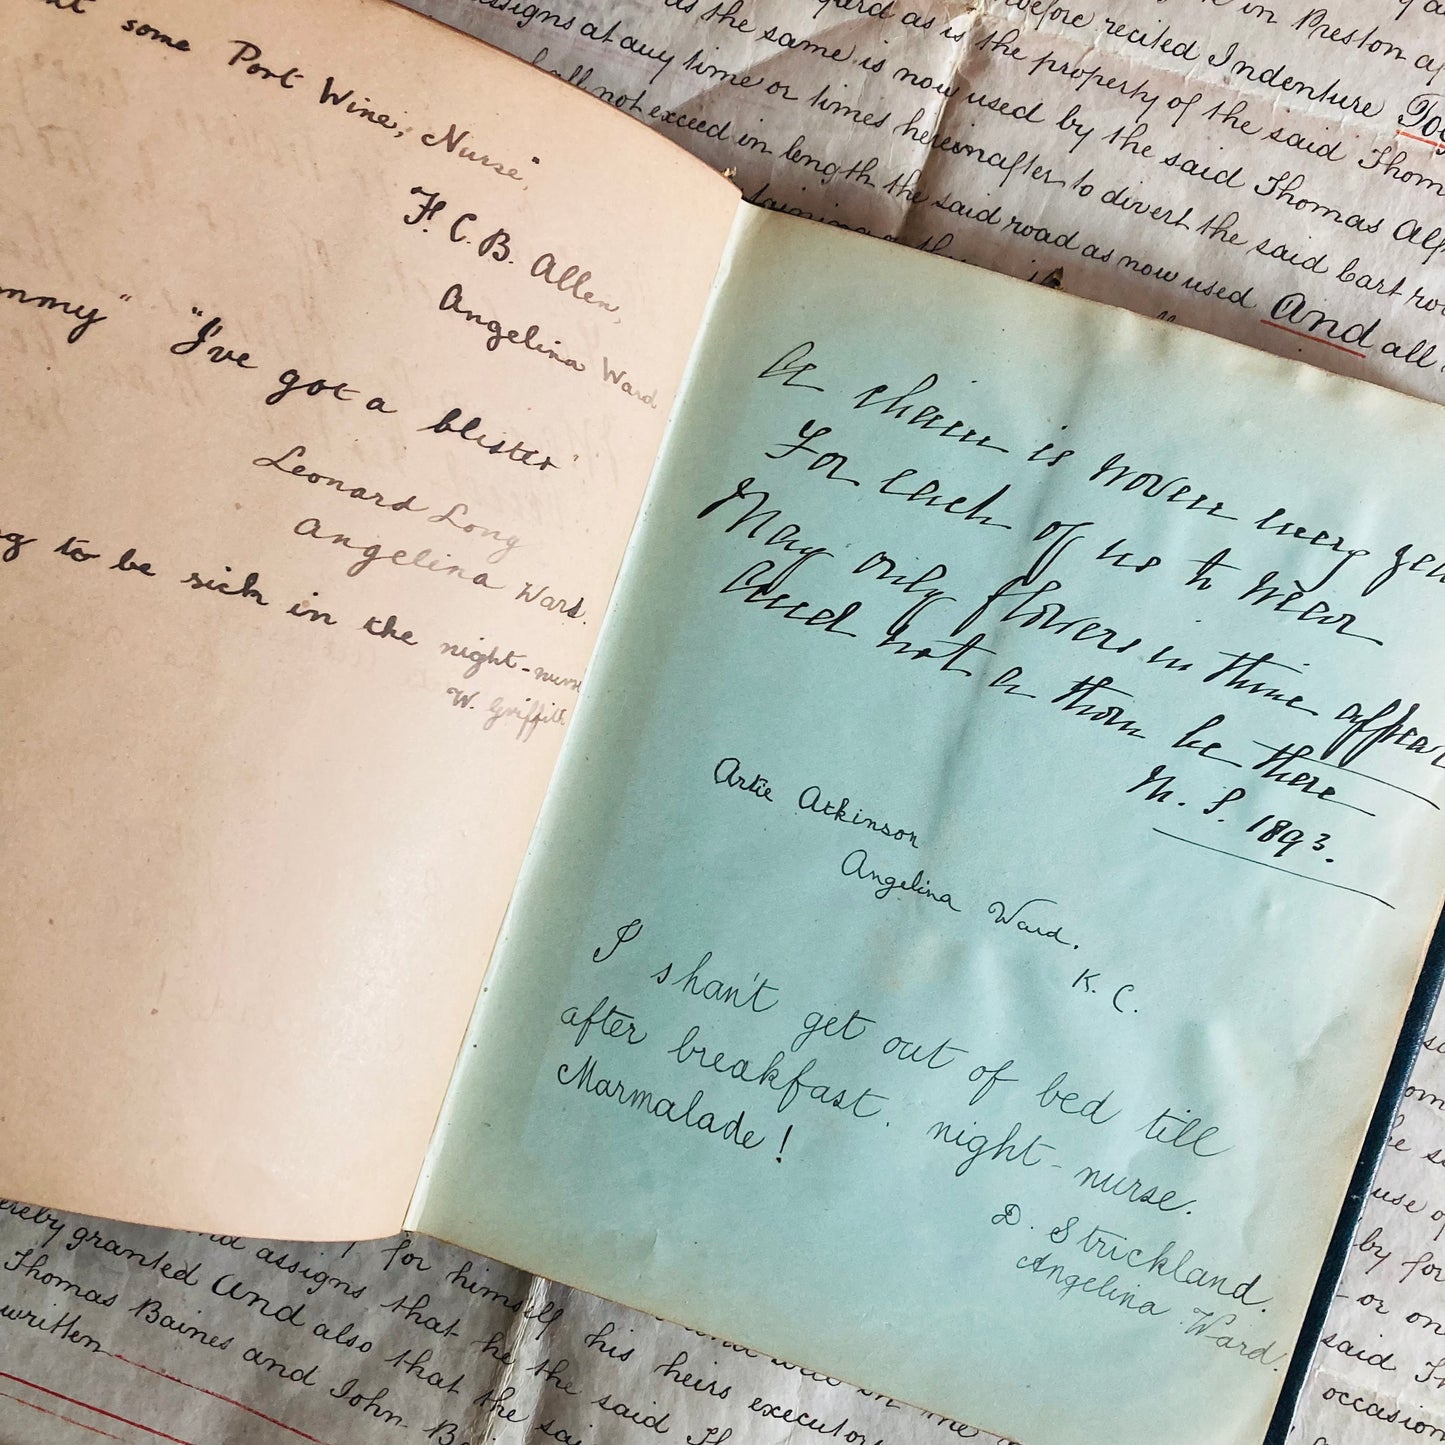 some Port Wine, Nurse",
H. C. B. Allen,
Angelina Ward
mmy" "I've got a blister"
Leonard Long
Angelina Ward.
to be sick in the night-nurse
W. Griffith
A chain is woven every year
For each of us to wear
May only flowers in thine appear
And not a thorn be there
M. S. 1893.
Artie Atkinson
Angelina Ward.
K. C.
I shan't get out of bed till
after breakfast. night-nurse.
Marmalade!
D. Strickland.
Angelina Ward.
in Preston
before recited Indenture
assigns at any time or times hereinafter to divert the said Cart
as the same is now used by the said Thomas
as is the property of the said Thom
shall not exceed in length the said road as now used And all
hereby granted And also that the
assigns that he the said
for himself his heirs executors
Thomas Baines and John
written
use of
by
or on
said
occasion